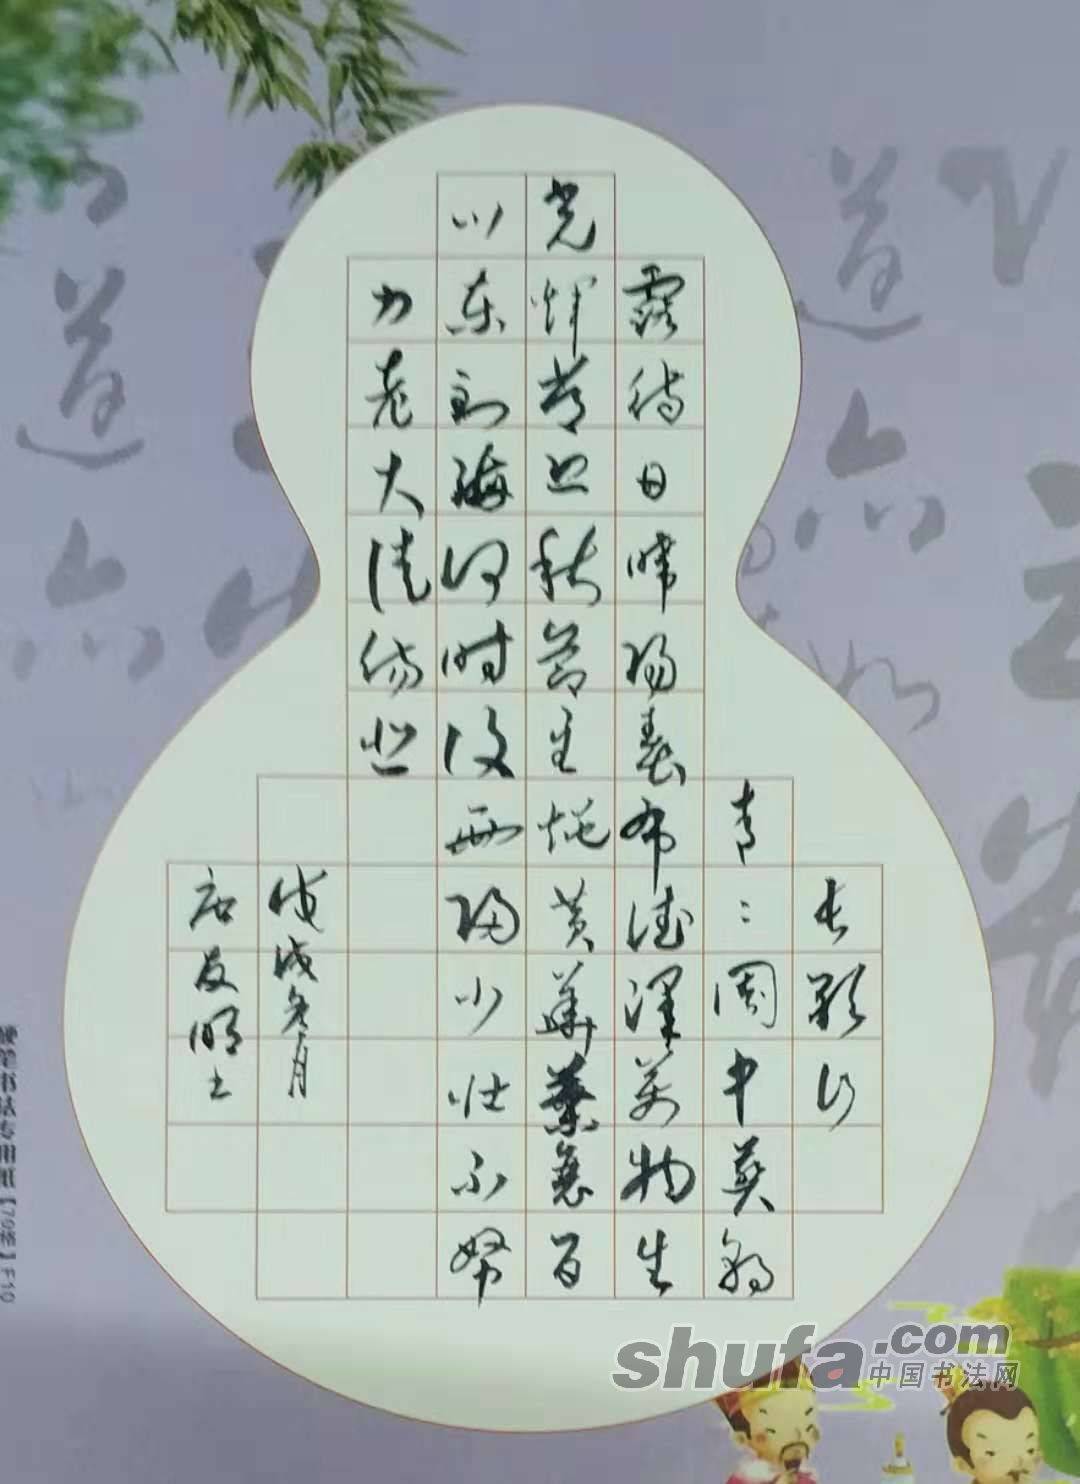 长歌行
青〻園中葵朝
露待日晞陽春布德澤萬物生
光輝常恐秋節至焜黄華葉衰百
川东到海何时復西歸少壮不努
力老大徒傷悲
戊戌冬月
友明
硬笔书法专用纸【70格】F10
shufa.com
中国书法网